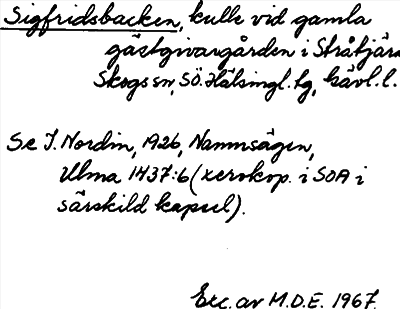 Sigfridsbacken, kulle vid gamla
gästgivargården i Stråtjära
Skogs sn, SÖ. Hälsingl. tg, Gävl. l.
Se J. Nordin, 1926, Namnsägen,
Ulma 1437:6 (xerokop. i SOA i
särskild kapsel).
Exc. av M.D.E. 1967.